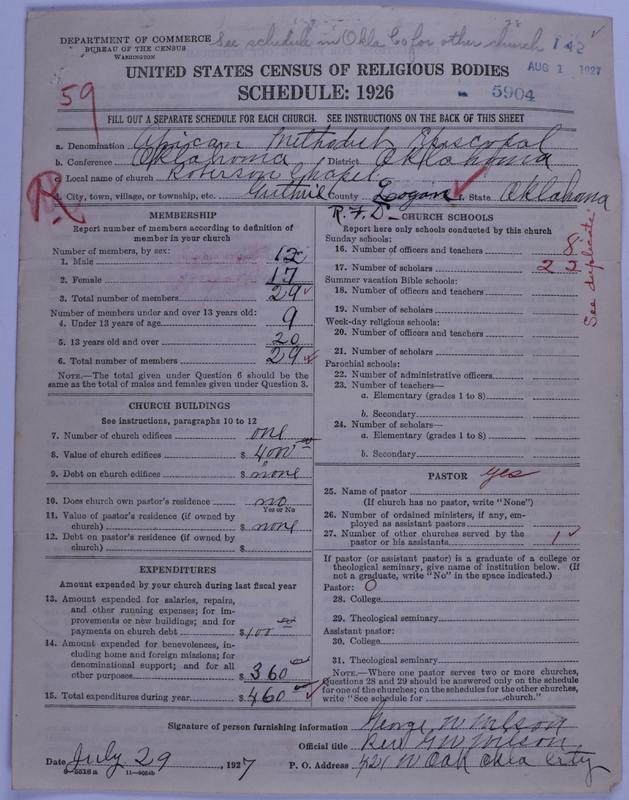 DEPARTMENT OF COMMERCE
BUREAU OF THE CENSUS
WASHINGTON
See schedule in Okla Co for other church
28
142
AUG 1 1927
UNITED STATES CENSUS OF RELIGIOUS BODIES
SCHEDULE: 1926
5904
59
FILL OUT A SEPARATE SCHEDULE FOR EACH CHURCH. SEE INSTRUCTIONS ON THE BACK OF THIS SHEET
a. Denomination African Methodist Episcopal
b. Conference Oklahoma District Oklahoma
c. Local name of church Roberson Chapel
d. City, town, village, or township, etc. Guthrie County Logan f. State Oklahoma
R
R.F.D.
MEMBERSHIP
Report number of members according to definition of member in your church
Number of members, by sex:
1. Male 12
2. Female 17
3. Total number of members 29
Number of members under and over 13 years old:
4. Under 13 years of age 9
5. 13 years old and over 20
6. Total number of members 29
NOTE.—The total given under Question 6 should be the same as the total of males and females given under Question 3.
CHURCH BUILDINGS
See instructions, paragraphs 10 to 12
7. Number of church edifices one
8. Value of church edifices $ 400 00
9. Debt on church edifices $ none
10. Does church own pastor's residence no
Yes or No
11. Value of pastor's residence (if owned by church) $ none
12. Debt on pastor's residence (if owned by church) $
EXPENDITURES
Amount expended by your church during last fiscal year
13. Amount expended for salaries, repairs, and other running expenses; for improvements or new buildings; and for payments on church debt $ 100 00
14. Amount expended for benevolences, including home and foreign missions; for denominational support; and for all other purposes $ 360 00
15. Total expenditures during year $ 460 00
CHURCH SCHOOLS
Report here only schools conducted by this church
Sunday schools:
16. Number of officers and teachers 8
17. Number of scholars 22
Summer vacation Bible schools:
18. Number of officers and teachers
19. Number of scholars
Week-day religious schools:
20. Number of officers and teachers
21. Number of scholars
Parochial schools:
22. Number of administrative officers
23. Number of teachers—
a. Elementary (grades 1 to 8)
b. Secondary
24. Number of scholars—
a. Elementary (grades 1 to 8)
b. Secondary
See duplicate
PASTOR yes
25. Name of pastor
(If church has no pastor, write "None")
26. Number of ordained ministers, if any, employed as assistant pastors
27. Number of other churches served by the pastor or his assistants 1
If pastor (or assistant pastor) is a graduate of a college or theological seminary, give name of institution below. (If not a graduate, write "No" in the space indicated.)
Pastor: O
28. College
29. Theological seminary
Assistant pastor:
30. College
31. Theological seminary
NOTE.—Where one pastor serves two or more churches, Questions 28 and 29 should be answered only on the schedule for one of the churches; on the schedules for the other churches, write "See schedule for church."
Signature of person furnishing information George W Wilson
Official title Rev G W Wilson
Date July 29, 1927 P. O. Address 421 W Oak Okla City
8-5518a 11-9054b